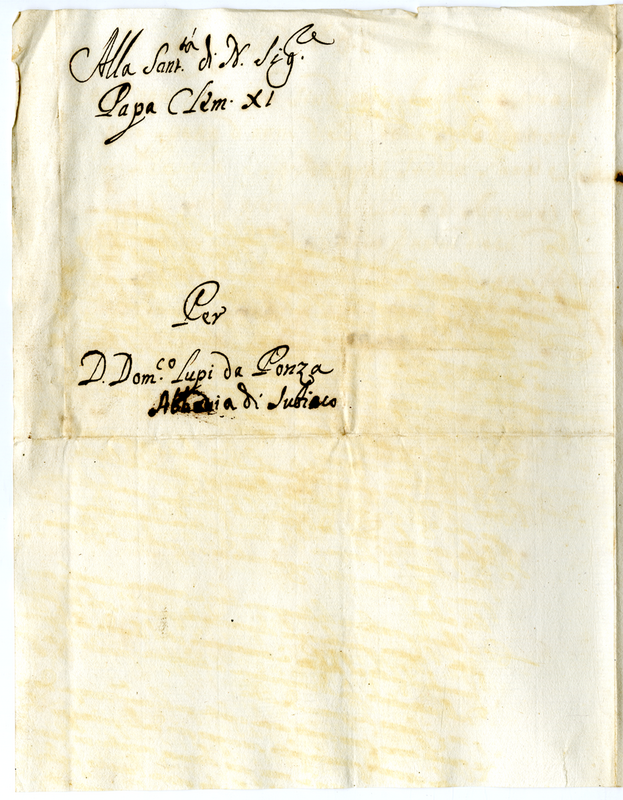 Alla Sant.tà di N. Sig.e
Papa Clem. XI
Per
D. Dom.co Lupi da Ponza
Abbadia di Subiaco